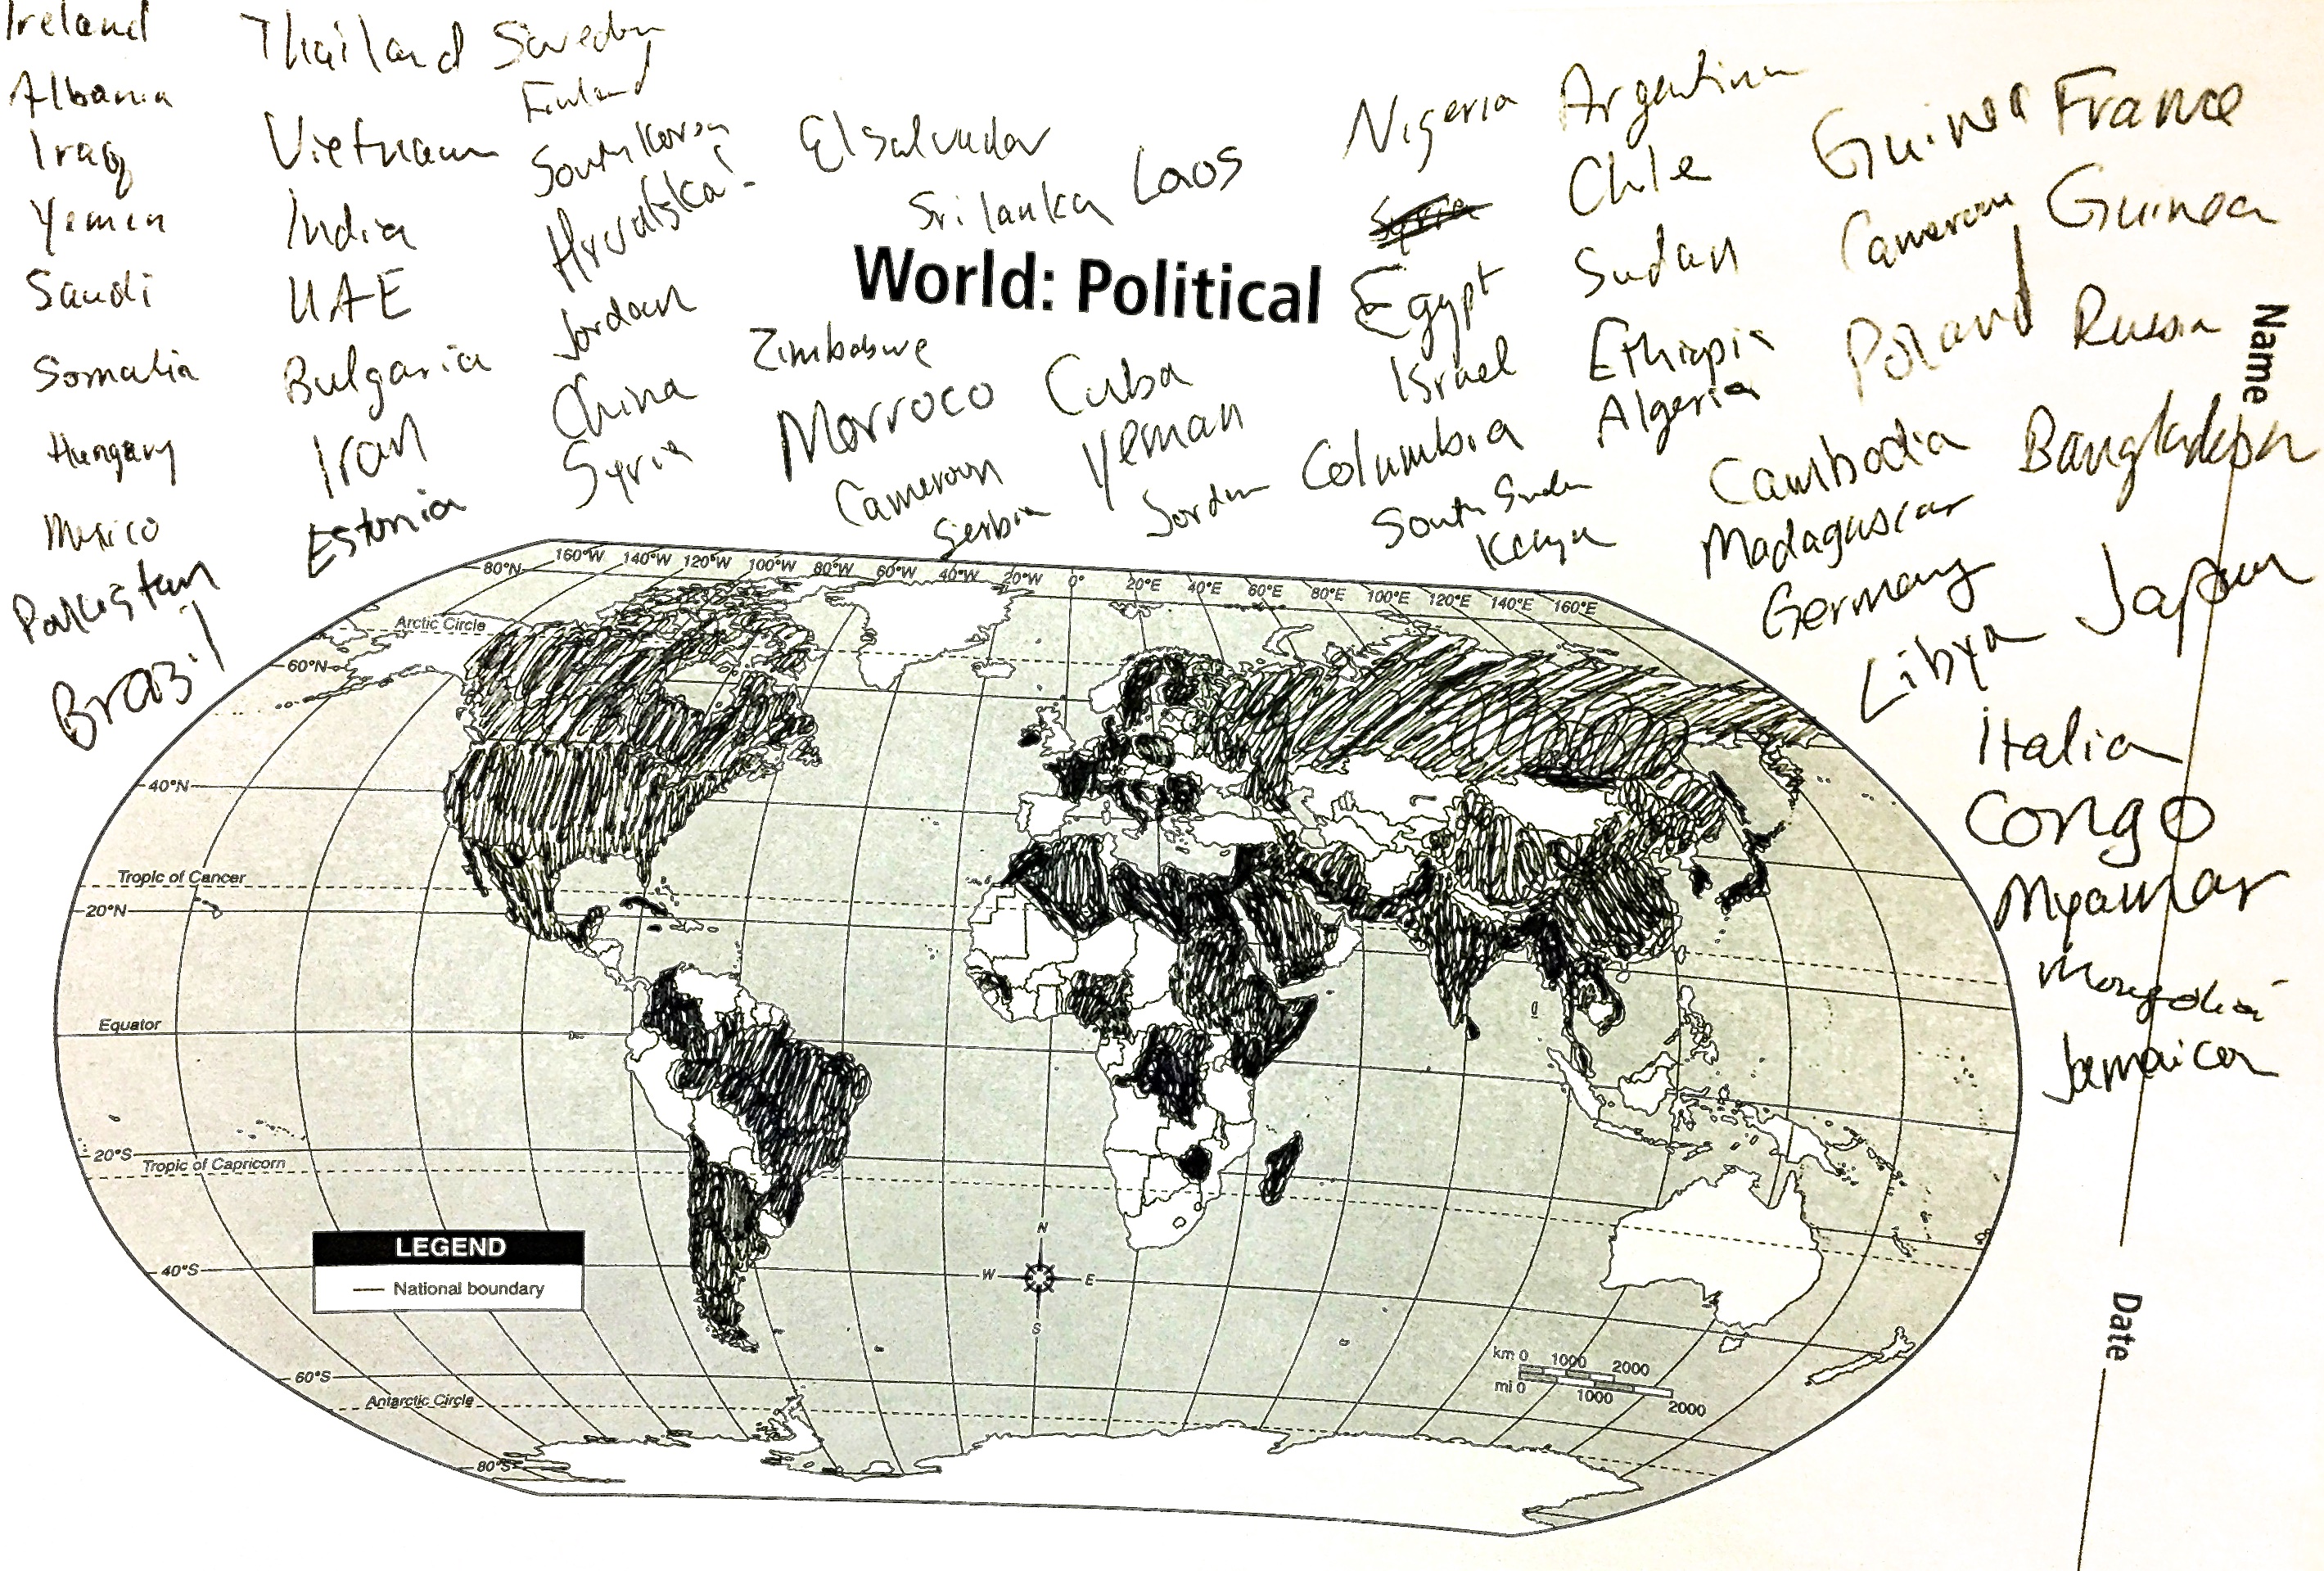 Ireland
Albania
Iraq
Yemen
Saudi
Somalia
Hungary
Mexico
Pakistan
Brazil
Thailand
Vietnam
India
UAE
Bulgaria
Iran
Estonia
Sweden
Finland
South Korea
Hrvatska
Jordan
China
Syria
El Salvador
Sri lanka
Laos
World: Political
Zimbabwe
Morroco
Cuba
Cameroon
Yeman
Serbia
Jordan
Nigeria
Syria
Egypt
Israel
Columbia
South Sudan
Kenya
Argentina
Chile
Sudan
Ethiopia
Algeria
Guinea
Cameroon
Poland
Cambodia
Madagascar
Germany
Libya
France
Guinea
Russia
Bangladesh
Japan
Italia
Congo
Myanmar
Mongolia
Jamaica
Name
Date
160°W 140°W 120°W 100°W 80°W 60°W 40°W 20°W 0° 20°E 40°E 60°E 80°E 100°E 120°E 140°E 160°E
80°N
Arctic Circle
60°N
40°N
Tropic of Cancer
20°N
Equator
20°S
Tropic of Capricorn
40°S
60°S
Antarctic Circle
80°S
LEGEND
National boundary
N
W E
S
km 0 1000 2000
mi 0 1000 2000